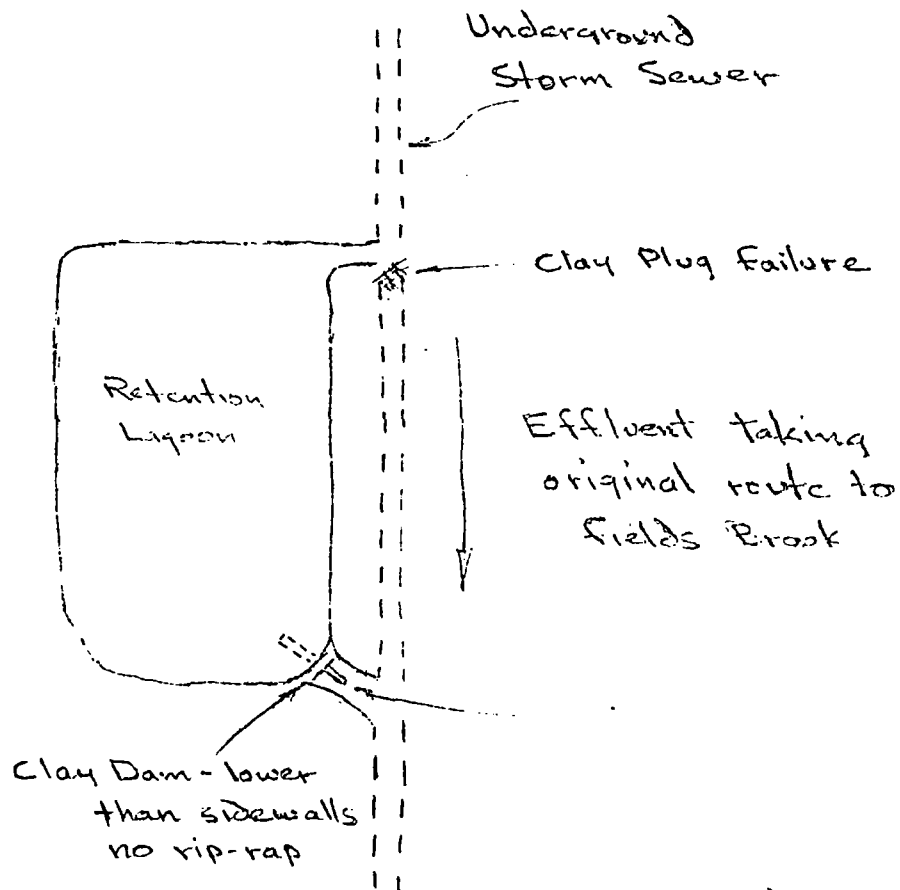 Underground
Storm Sewer
Clay Plug Failure
Retention
Lagoon
Effluent taking
original route to
Fields Brook
Clay Dam - lower
than sidewalls
no rip-rap